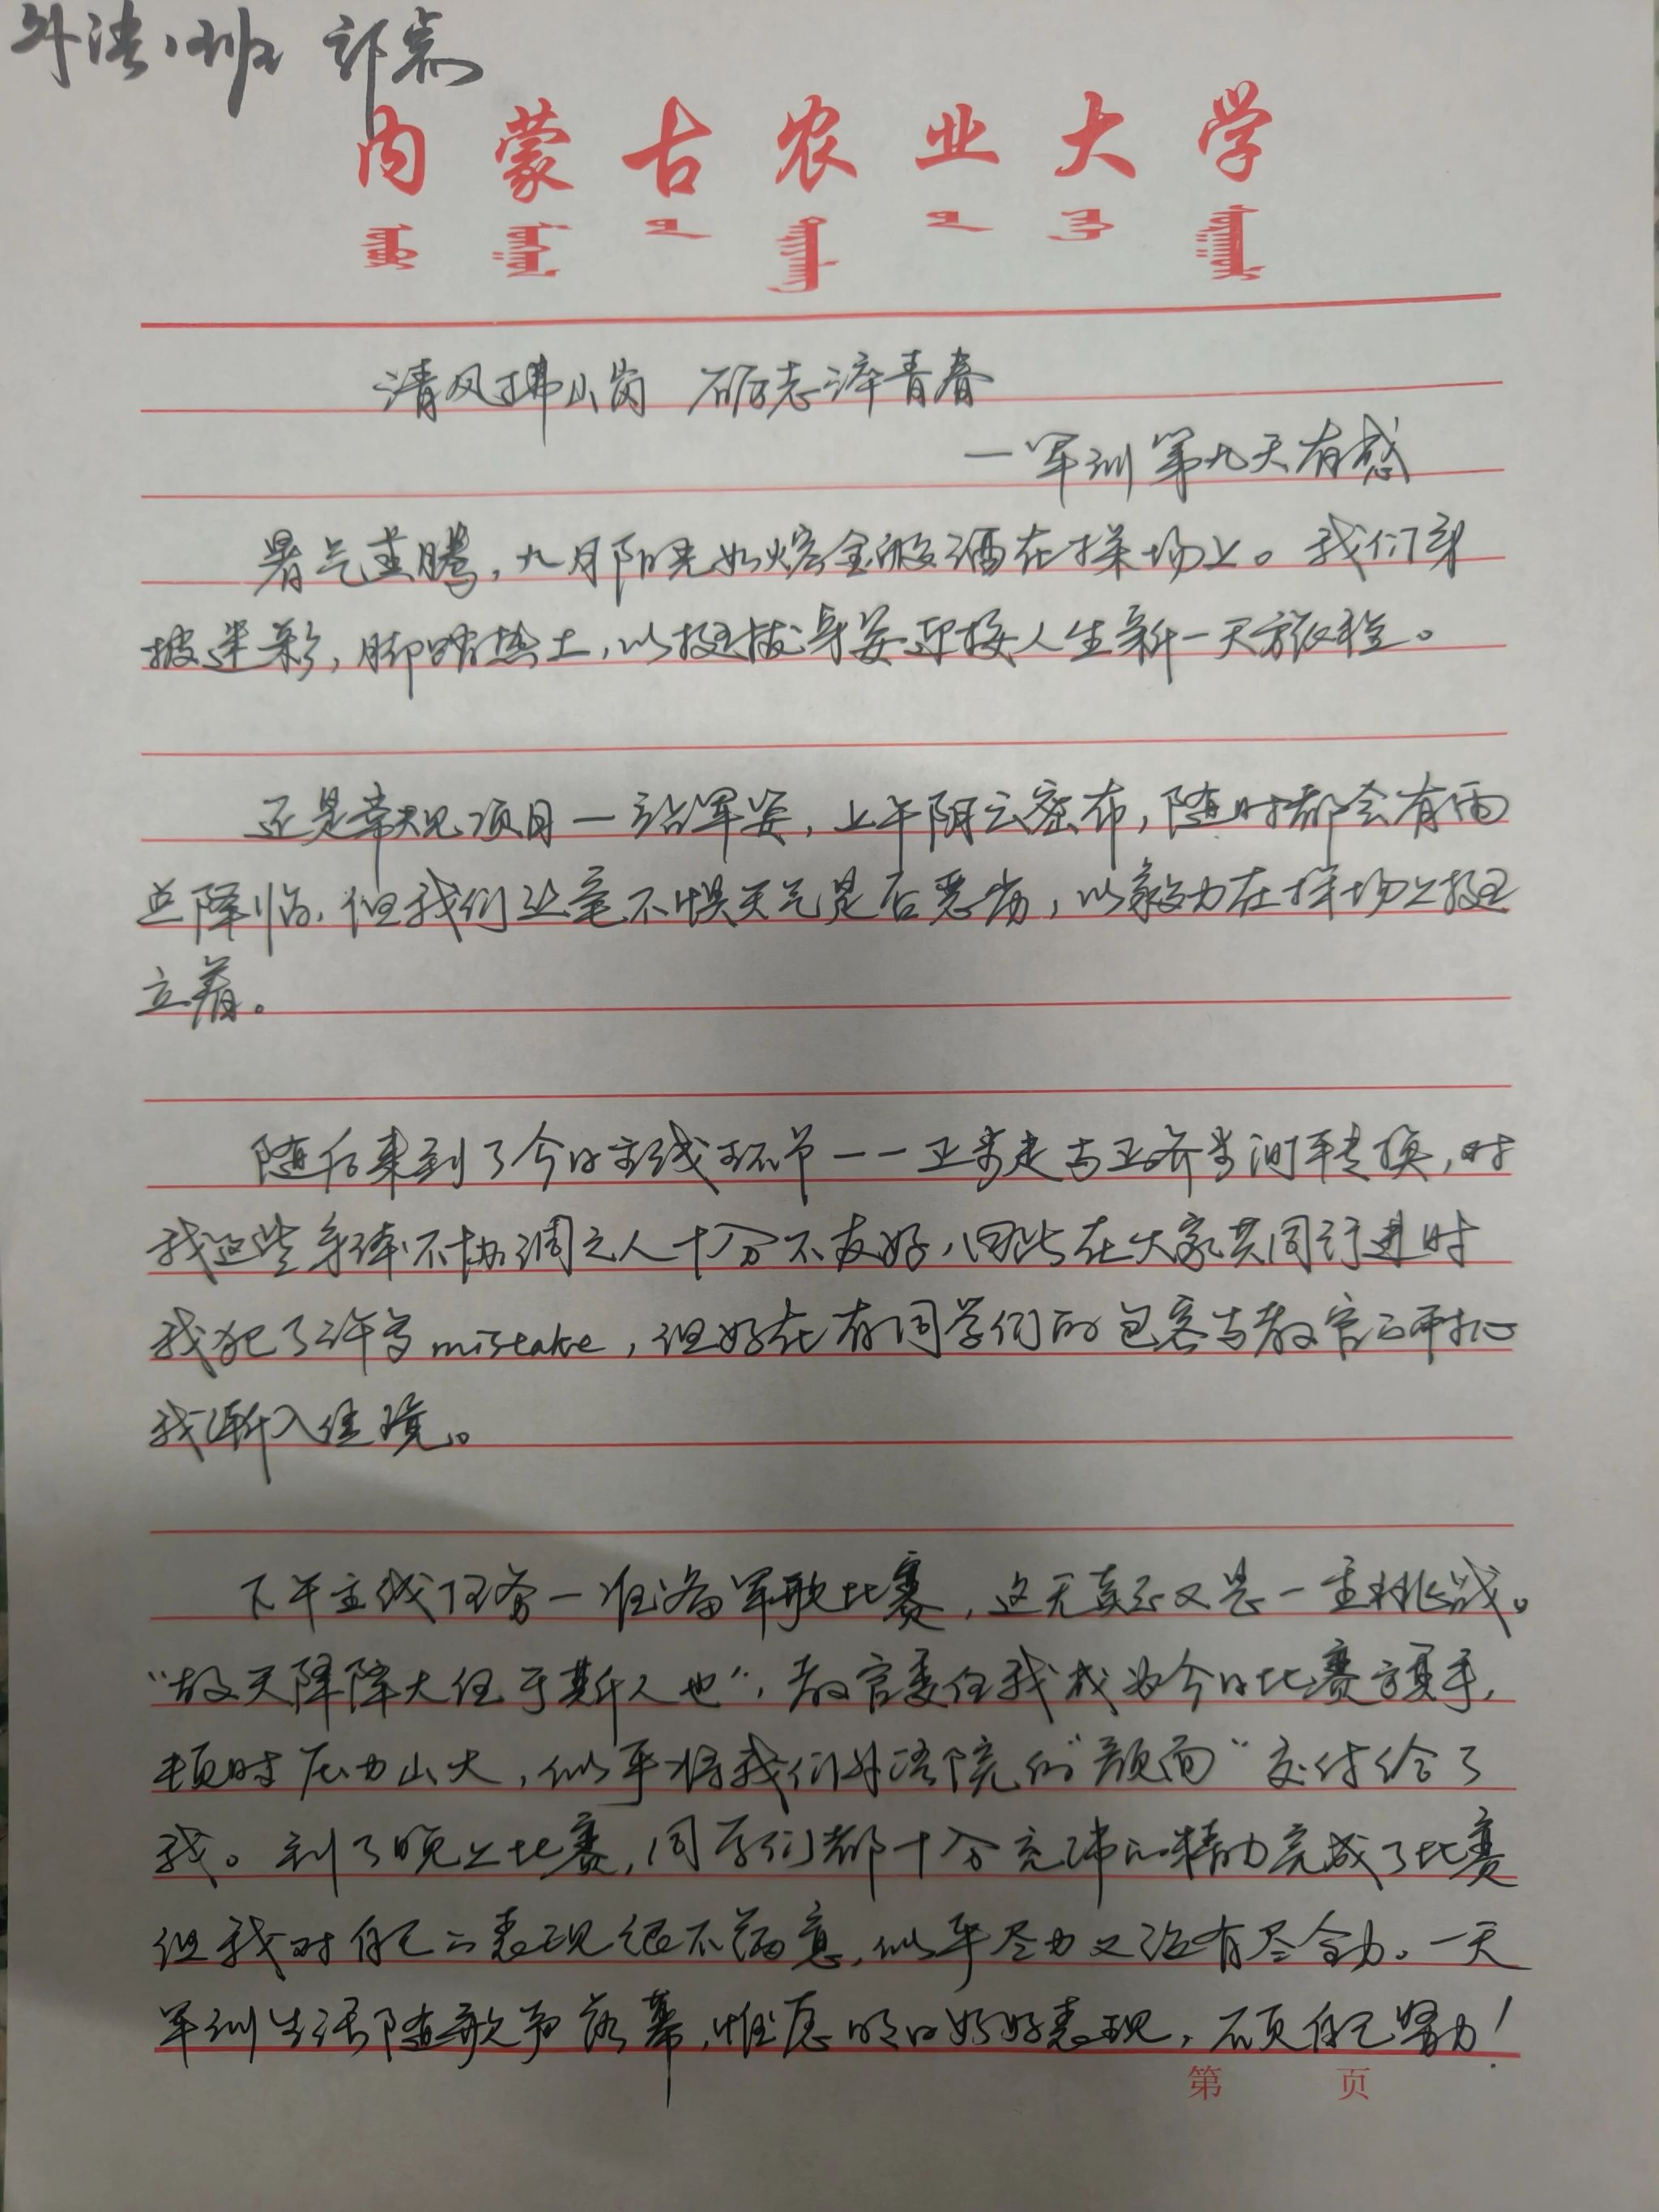 外语1班
内蒙古农业大学
清风拂山岗 砺志淬青春
—军训第九天有感
暑气蒸腾，九月阳光如熔金般洒在操场上。我们身
披迷彩，脚踏热土，以挺拔身姿迎接人生新一天旅程。
还是常规项目—站军姿，上午阴云密布，随时都会有雨
点降临，但我们丝毫不惧天气是否恶劣，以毅力在操场上挺
立着。
随后来到了今日主线环节——正步走与正齐步间转换，对
我这些身体不协调之人十分不友好，因此在大家共同行进时
我犯了许多mistake，但好在有同学们的包容与教官的帮扶
我渐入佳境。
下午主线任务—准备军歌比赛，这无疑又是一重挑战。
“故天降降大任于斯人也”，教官委任我成为今日比赛旗手，
顿时压力山大，似乎将我们外语院的“颜面”交付给了
我。到了晚上比赛，同学们都十分充沛的精力完成了比赛
但我对自己的表现很不满意，似乎尽力又没有尽全力。一天
军训生活随歌声落幕，惟愿明日好好表现，不负自己努力！
第 页